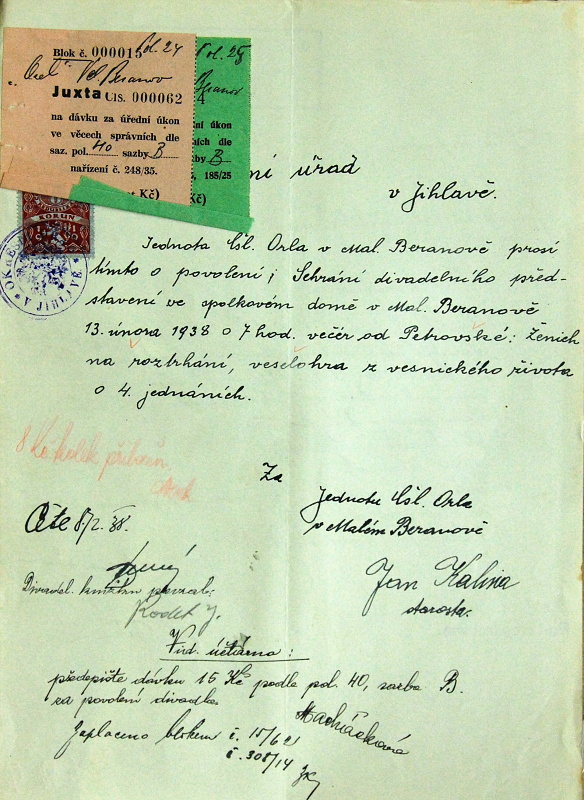 Blok č. 000015 Pol. 24
"Orel" Vel. Beranov
Juxta Čís. 000062
na dávku za úřední úkon
ve věcech správních dle
saz. pol. 40 sazby B
nařízení č. 248/35.
Kč)
Pol. 25
Beranov
4
úkon
ních dle
zby B
185/25
Kč)
ní úřad
v Jihlavě.
KORUN
OKRES
V JIHLAVĚ
Jednota Čsl. Orla v Mal. Beranově prosí
tímto o povolení; Sehrání divadelního před-
stavení ve spolkovém domě v Mal. Beranově
13. února 1938 o 7 hod. večer od Petrovské: Ženich
na roztrhání, veselohra z vesnického života
o 4. jednáních.
8 Kč kolek
Za
Jednotu Čsl. Orla
v Malém Beranově
Jan Kalina
starosta.
8/2. 38.
Divadel. knížku převzal:
Vid. účtárna:
předepište dávku 15 Kč podle pol. 40, sazba B.
za povolení divadla.
Zaplaceno blokem č. 15/62
č. 308/14